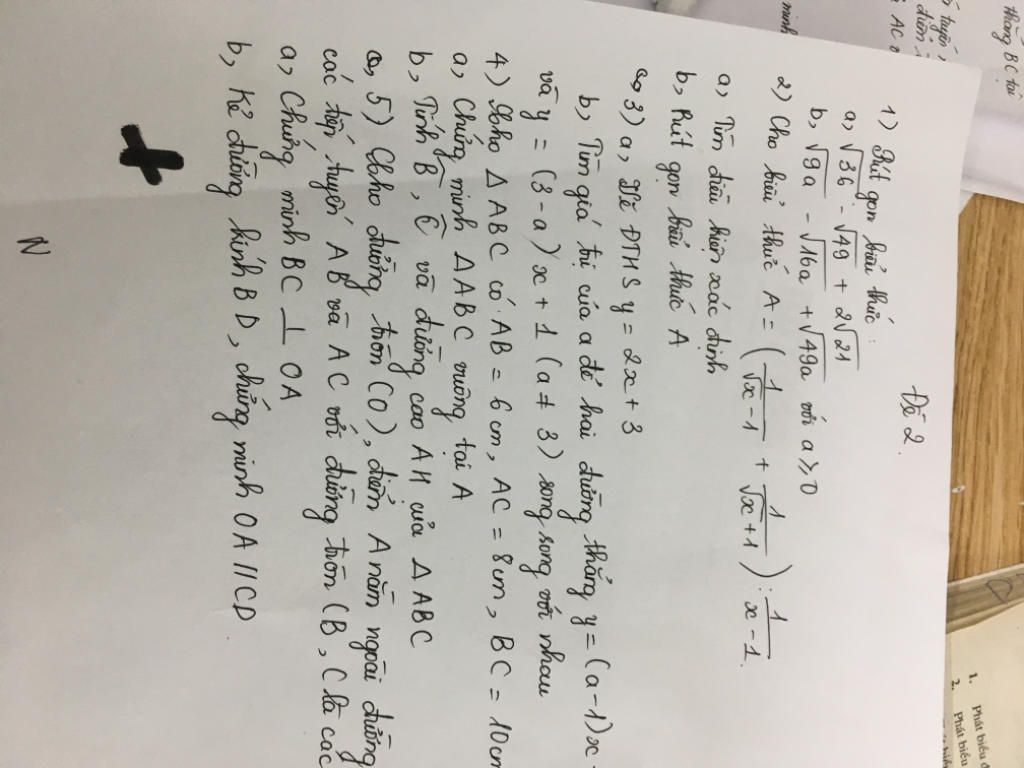 Đề 2.
1) Rút gọn biểu thức:
a, √36 - √49 + 2√21
b, √9a - √16a + √49a với a ≥ 0
2) Cho biểu thức A = (1/(√x - 1) + 1/(√x + 1)) : 1/(x - 1).
a, Tìm điều kiện xác định
b, Rút gọn biểu thức A
3) a, Vẽ ĐTHS y = 2x + 3
b, Tìm giá trị của a để hai đường thẳng y = (a - 1)x
và y = (3 - a)x + 1 (a ≠ 3) song song với nhau
4) Cho Δ ABC có AB = 6 cm, AC = 8 cm, BC = 10cm
a, Chứng minh Δ ABC vuông tại A
b, Tính B̂, Ĉ và đường cao AH của Δ ABC
5) Cho đường tròn (O), điểm A nằm ngoài đường
các tiếp tuyến AB và AC với đường tròn (B, C là các
a, Chứng minh BC ⊥ OA
b, Kẻ đường kính BD, chứng minh OA // CD
N
thẳng BC tại
tuyến
điểm
AC
minh
1. Phát biểu
2. Phát biểu